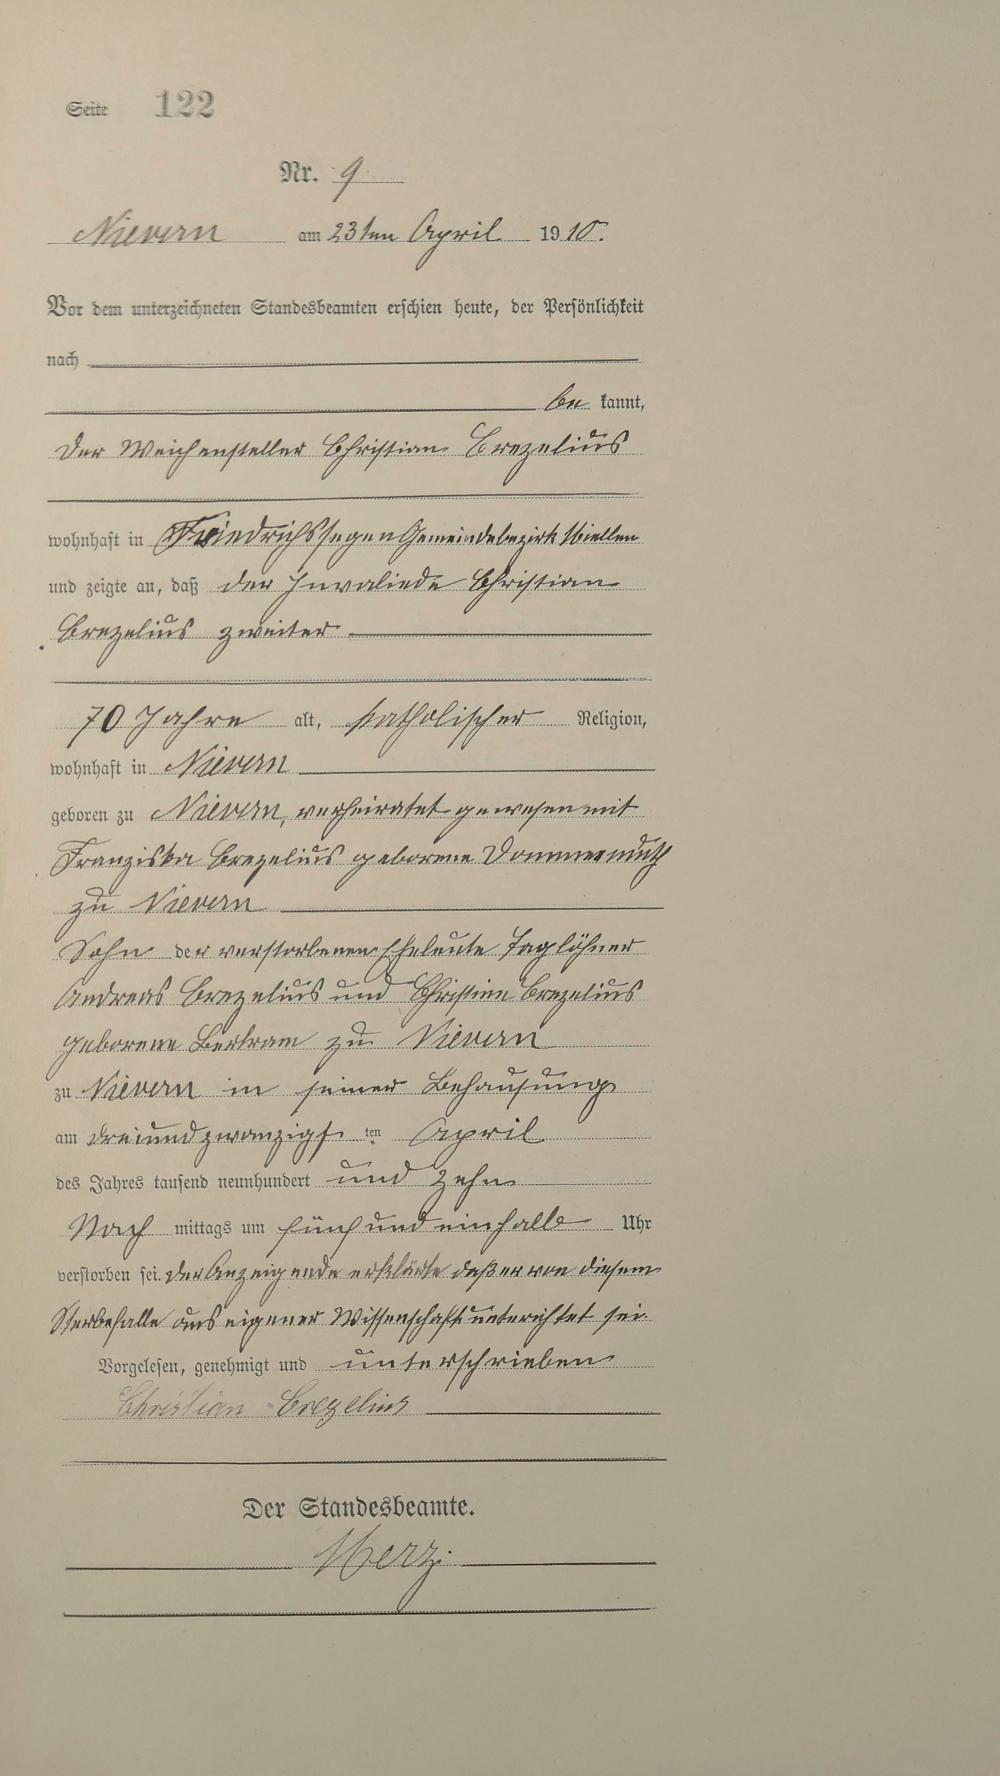 Seite 122
Nr. 9
Nievern am 23ten April 1910.
Vor dem unterzeichneten Standesbeamten erschien heute, der Persönlichkeit
nach
be kannt,
der Weichensteller Christian Crezelius
wohnhaft in Friedrichssegen Gemeindebezirk Miellen
und zeigte an, daß der Invaliede Christian
Crezelius zweiter
70 Jahre alt, katholischer Religion,
wohnhaft in Nievern
geboren zu Nievern, verheiratet gewesen mit
Franziska Crezelius geborene Dommermuth
zu Nievern
Sohn der verstorbenen Eheleute Taglöhner
Andreas Crezelius und Christine Crezelius
geborene Bertram zu Nievern
zu Nievern in seiner Behausung
am dreiundzwanzigs ten April
des Jahres tausend neunhundert und zehn
Nach mittags um fünf und einhalb Uhr
verstorben sei. Der Anzeigende erklärte daß er von diesem
Sterbefalle aus eigener Wissenschaft unterichtet sei.
Vorgelesen, genehmigt und unterschrieben
Christian Crezelius
Der Standesbeamte.
Merz.